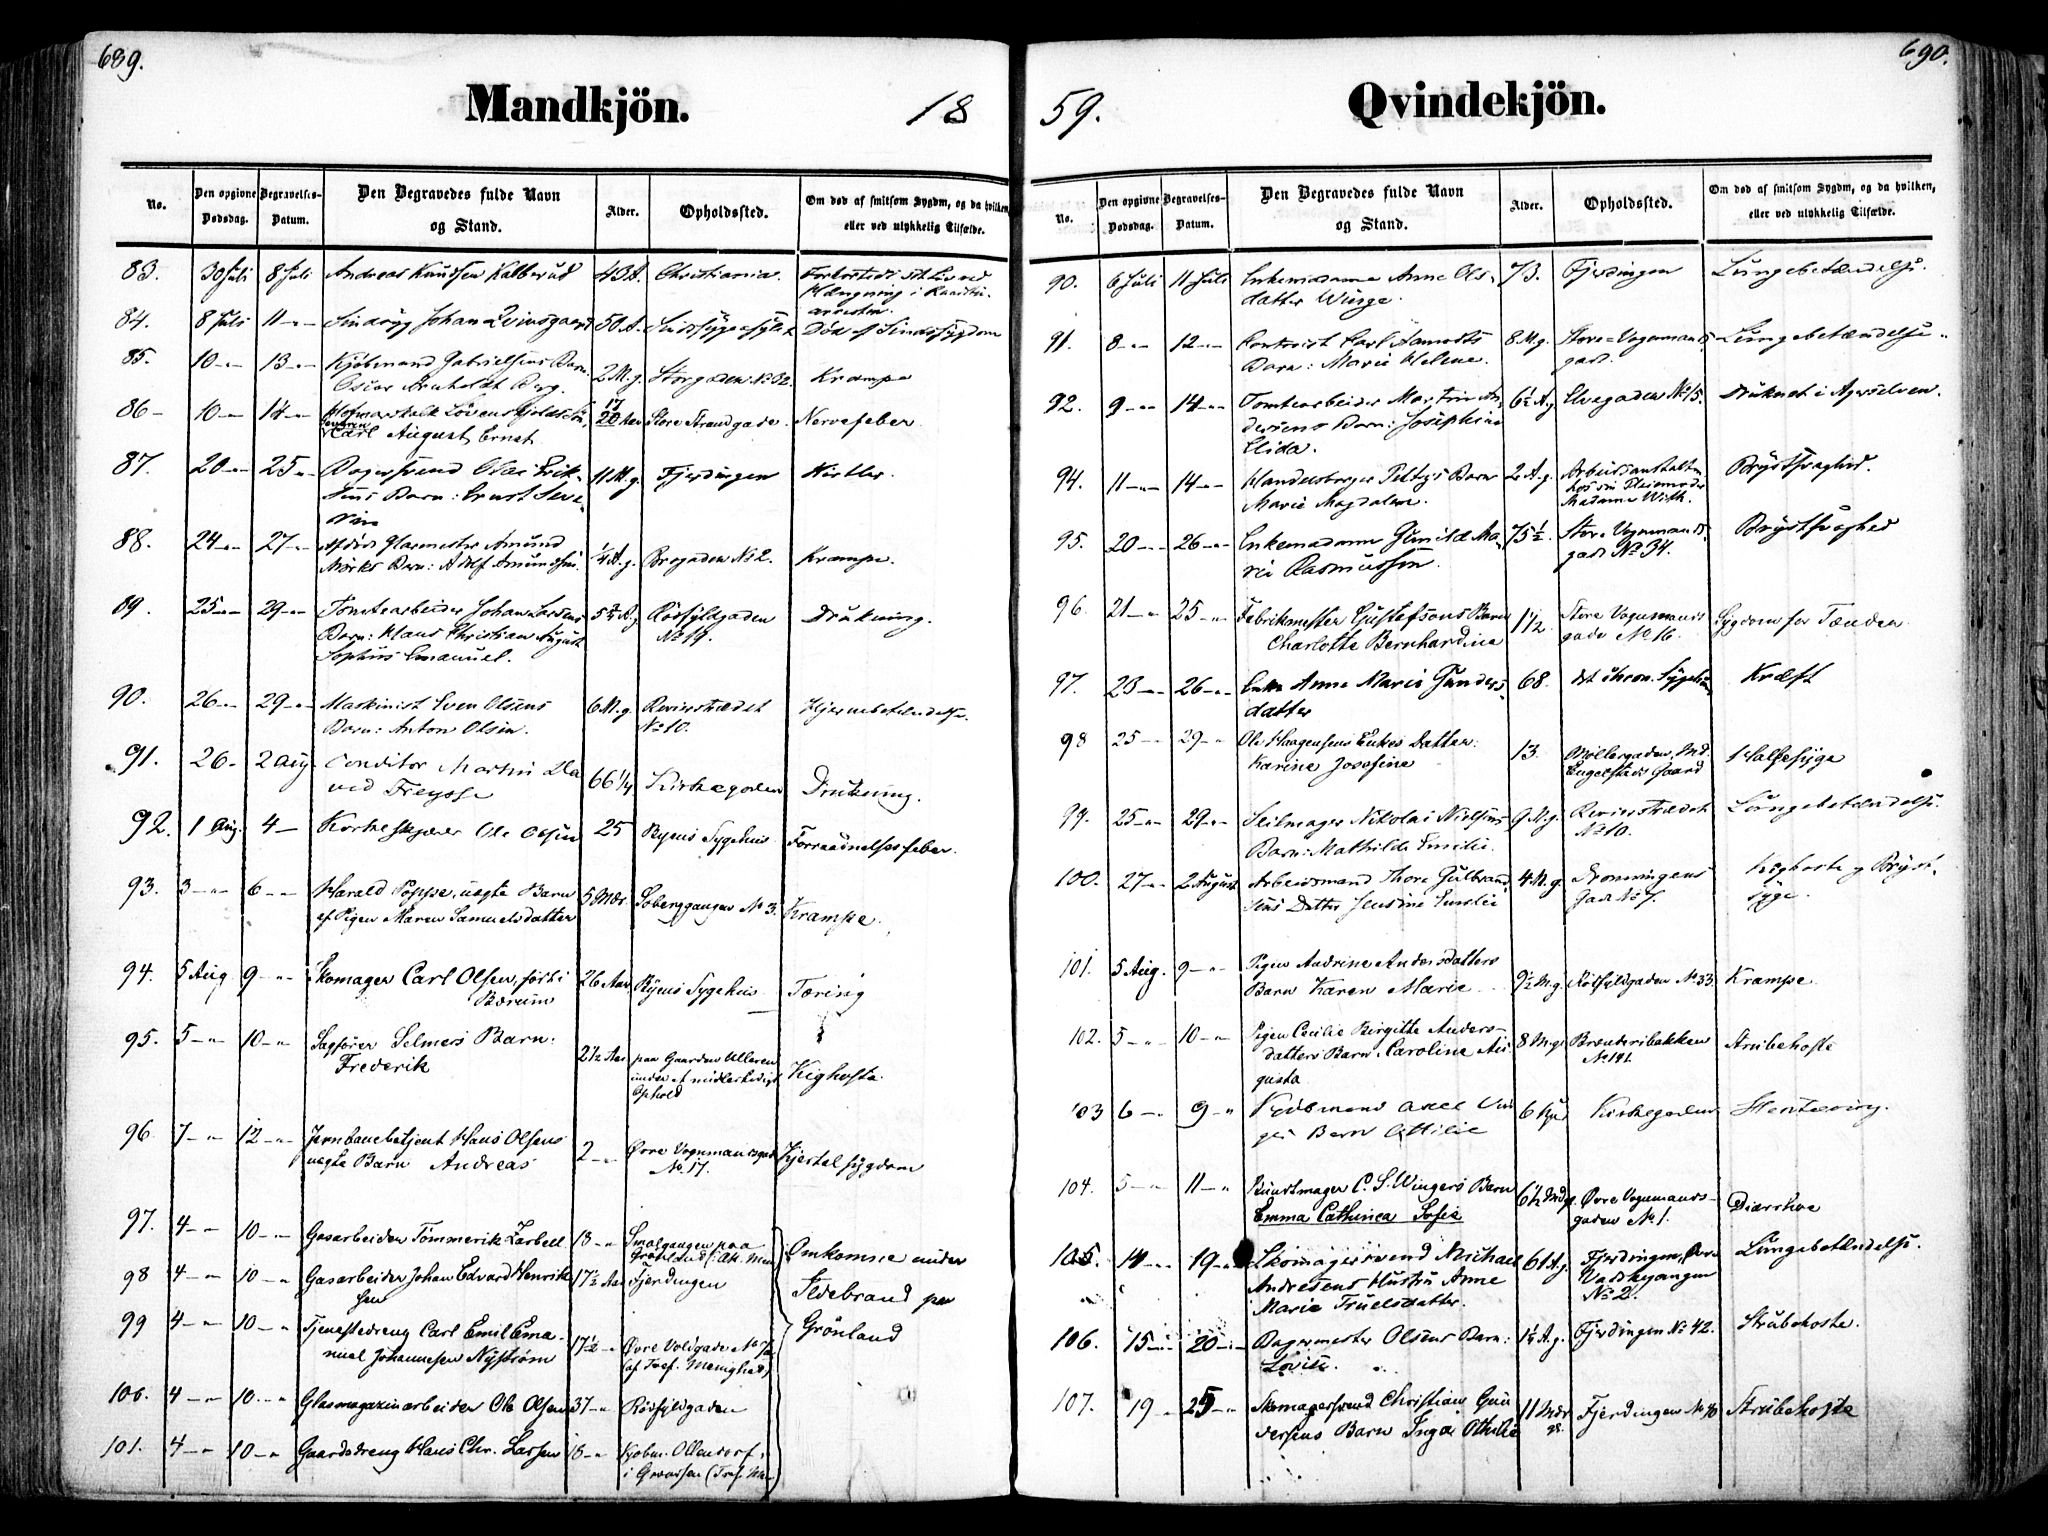 689.
Mandkjön.
18
No.
Den opgivne Dødsdag.
Begravelses-Datum.
Den Begravedes fulde Navn og Stand.
Alder.
Opholdssted.
Om død af smitsom Sygdm, og da hvilken, eller ved ulykkelig Tilfælde.
83. 30 Juli 8 Juli Andreas Knudsen Kalberud 43 A. Christiania.
Hængning i Raadstu-
arresten.
84. 8 Juli 11 Sindssyg Johan 50 A. Død af Sindssygdom
85. 10 13 Kjøbmand Gabrielsens Barn
Oscar Berg. 2 M. g. Storgaden No 32. Krampe
86 10 14 Hofmarskalk Løvenskjolds Søn,
Carl August Ernst 20 Aar Store Strandgade. Nervefeber
87. 20 25 Bagersvend Olai Erik-
sens Barn: Ernst Seve-
rin 11 M. g. Fjerdingen Kirtler.
88. 24 27 Afdøde Glarmester Amund
Mørks Barn: Adolf Amundsen. 1/4 A. g. Brogaden No 2. Krampe.
89. 25 29 Tomtearbeider Johan Larsens
Barn: Klaus Christian August
Sophus Emanuel. Rødfyldgaden
Drukning.
90. 26 29 Maskinist Sven Olsens
Barn: Anton Olsen. 6 M. g. Revierstrædet
No 10. Hjernebetændelse.
91. 26 2 Aug Conditor Martin Da-
vid Freysse 66 1/4 Kirkegaden Drukning.
92. 1 Aug. 4 Korkeskjærer Ole Olsen 25 Ryens Sygehus Forraadnelsesfeber.
93. 3 6 Harald Poppe, uægte Barn
af Pigen Maren Samuelsdatter 5 Mdr. Søbergganger No 3. Krampe.
94. 5 Aug 9 Skomager Carl Olsen, født i
Bærum 26 Aar Ryens Sygehus Tæring
95. 5 10 Sagfører Selmers Barn:
Frederik 2 1/2 Aar paa Gaarden Ulleren
under et midlertidigt
Ophold Kighoste.
96. 7 12 Jernbanebetjent Hans Olsens
uægte Barn Andreas 2 Øvre Vognmandsgade
No 17. Kjertelsygdom
97. 4 10 Gasarbeider Tømmerik Zarbell 13 Smalgangen paa
Grønland
98 4 10 Gasarbeider Johan Edvard Henrik-
sen 17 1/2 Aar Fjerdingen
99 4 10 Tjenestedreng Carl Emil Ema-
nuel Johannesen Nyström 17 1/2 Øvre Voldgade
af Menighed)
Omkomne under
Ildebrand paa
Grönland
100. 4 10 Glasmagazinarbeider Ole Olsen 37 Rödfyldgaden
101. 4 10 Gaardsdreng Hans Chr. Larsen 18 Kjøbm. Ollendorf
690.
59.
Qvindekjön.
No.
Den opgivne Dødsdag.
Begravelses-Datum.
Den Begravedes fulde Navn og Stand.
Alder.
Opholdssted.
Om død af smitsom Sygdm, og da hvilken, eller ved ulykkelig Tilfælde.
90. 6 Juli 11 Juli Enkemadame Anne Ols-
datter Winge. 73. Fjerdingen Lungebetændelse.
91. 8 12 Contorist Carl Aamodts
Barn: Marie Helene. 8 M. g. Store-Vognmands-
gade. Lungebetændelse.
92. 9 14 Tomtearbeider Martin An-
dersens Barn: Josephine
Elida. 6 1/2 A. g. Elvegaden No 15. Druknet i Agerselven.
94. 11 14 Handelsborger Barn
Marie Magdalene. 2 A. g. Arbeidsanstalten
hos sin Pleiemoder
Madame With. Brystsvaghed.
95. 20 26 Enkemadame Gunild Ma-
rie Rasmussen. 75 1/2. Store Vognmands-
gade No 34. Brystsvaghed
96. 21 25 Fabrikmester Gustafsons Barn
Charlotte Bernhardine 1 1/2 Store Vognmands-
gade No 16. Sygdom for Tænder
97. 23 26 Enke Anne Marie Gunders-
datter 68. det chron. Sygehus Kræft
98 25 29 Ole Haagensens Enkes Datter:
Karine Josefine 13. Møllergaden, Md.
Engelstads Gaard Halsesyge
99. 25 29 Seilmager Nikolai Nielsens
Barn: Mathilde Emilie. 9 M. g. Revierstrædet
No 10. Lungebetændelse.
100. 27 2 August Arbeidsmand Thore Gulbrand-
sens Datter Jensine Emilie 4 M. g. Dronningens
Gade No 7. Kighoste og Bryst-
syge.
101. 5 Aug. 9 Pigen Andrine Andersdatters
Barn Karen Marie 9 1/2 M. g. Rödfyldgaden No 33. Krampe.
102. 5 10 Pigen Cecilie Birgitte Anders-
datters Barn Caroline Au-
gusta 8 M. g. Brenneribakken
No 191. Strubehoste
103 6 9 Kjøbmand Axel Vin-
ges Barn Ottilie Kirkegaden
104. 5 11 Buntmager C. S. Wingers Barn
Emma Cathinca Sofie 6 1/2 Md g. Øvre Vognmands-
gaden No 1. Diærrhoe
105. 14 19 Skomagersvend Michael
Andresens Hustru Anne
Marie Truelsdatter. 61 A. g. Fjerdingen, Øvre
Vadskegangen
No 2. Lungebetændelse.
106. 15 20 Bagermester Olsens Barn:
Lovise. Fjerdingen No 42. Strubehoste.
107. 19 25 Skomagersvend Christian Gun-
dersens Barn Inga Othilie 11 Mdr
g. Fjerdingen Strubehoste